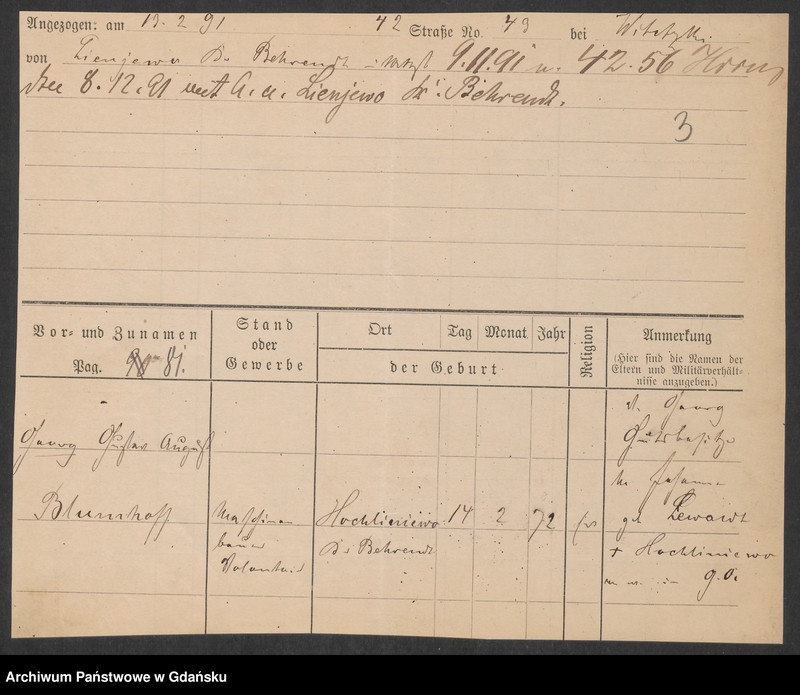 Angezogen: am 13. 2 91 42 Straße No. 43 bei
von Lienjewo Dr. Behrendt 9.11.91 u. 42. 56
den 8. 12. 91 Lienjewo Kr. Behrendt.
3
Vor- und Zunamen
Pag. 81.
Stand
oder
Gewerbe
Ort Tag Monat Jahr
der Geburt
Religion
Anmerkung
(Hier sind die Namen der
Eltern und Militärverhält-
nisse anzugeben.)
Georg Gustav August
Blumhoff
Maschinen
bauer
Volontair
Hochliniewo 14 2 72
Behrendt
V. Georg
Gutsbesitzer
M. Johanna
geb. Lewardt
+ Hochliniewo
g. O.
Archiwum Państwowe w Gdańsku